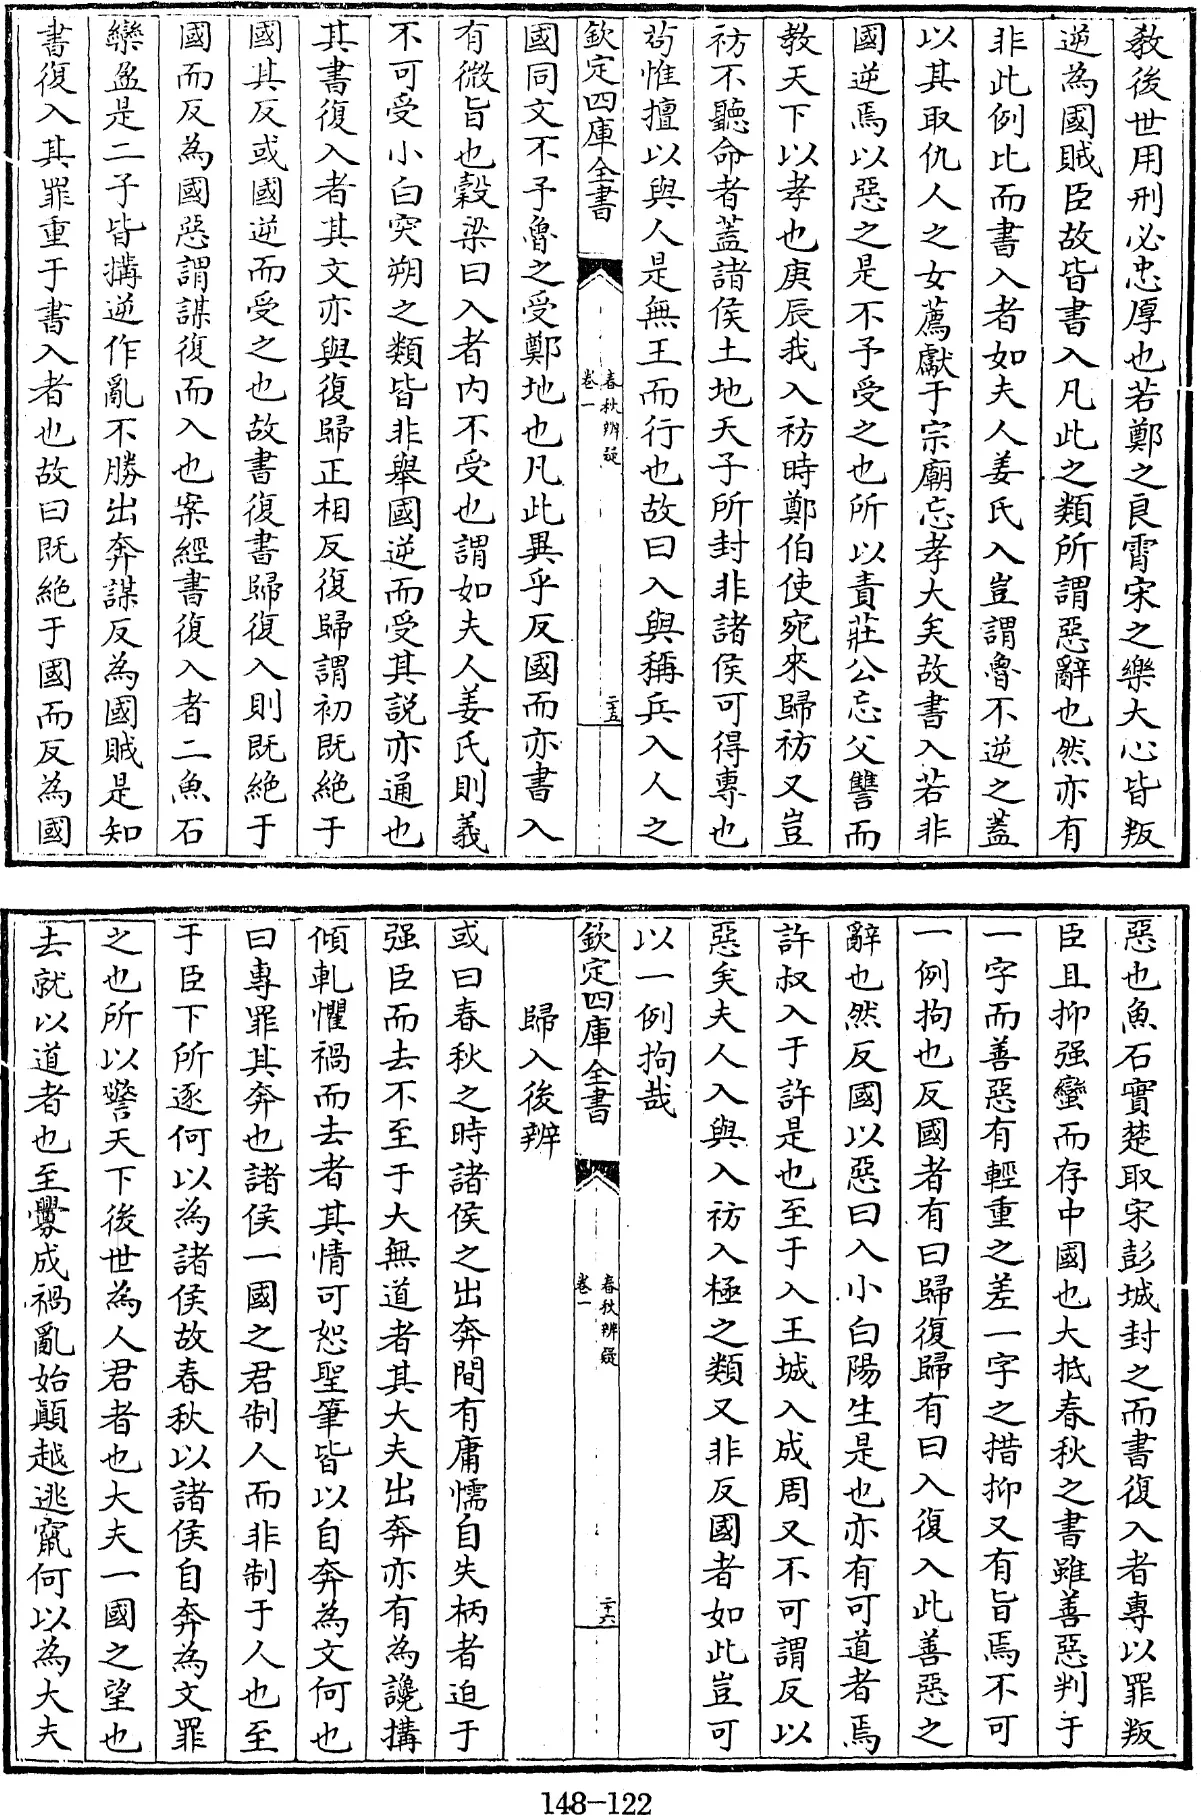 教後世用刑必忠厚也若鄭之良霄宋之樂大心皆叛
逆為國賊臣故皆書入凡此之類所謂惡辭也然亦有
非此例比而書入者如夫人姜氏入豈謂魯不逆之蓋
以其取仇人之女薦獻于宗廟忘孝大矣故書入若非
國逆焉以惡之是不予受之也所以責莊公忘父讐而
教天下以孝也庚辰我入祊時鄭伯使宛來歸祊又豈
祊不聽命者蓋諸侯土地天子所封非諸侯可得專也
茍惟擅以與人是無王而行也故曰入與稱兵入人之
欽定四庫全書
春秋辨疑
卷一
二十五
國同文不予魯之受鄭地也凡此異乎反國而亦書入
有微旨也穀梁曰入者内不受也謂如夫人姜氏則義
不可受小白突朔之類皆非舉國逆而受其説亦通也
其書復入者其文亦與復歸正相反復歸謂初既絶于
國其反或國逆而受之也故書復書歸復入則既絶于
國而反為國惡謂謀復而入也案經書復入者二魚石
欒盈是二子皆搆逆作亂不勝出奔謀反為國賊是知
書復入其罪重于書入者也故曰既絶于國而反為國
惡也魚石實楚取宋彭城封之而書復入者專以罪叛
臣且抑强蠻而存中國也大抵春秋之書雖善惡判于
一字而善惡有輕重之差一字之措抑又有旨焉不可
一例拘也反國者有曰歸復歸有曰入復入此善惡之
辭也然反國以惡曰入小白陽生是也亦有可道者焉
許叔入于許是也至于入王城入成周又不可謂反以
惡矣夫人入與入祊入極之類又非反國者如此豈可
以一例拘哉
欽定四庫全書
春秋辨疑
卷一
二十六
歸入後辨
或曰春秋之時諸侯之出奔間有庸懦自失柄者迫于
强臣而去不至于大無道者其大夫出奔亦有為讒搆
傾軋懼禍而去者其情可恕聖筆皆以自奔為文何也
曰專罪其奔也諸侯一國之君制人而非制于人也至
于臣下所逐何以為諸侯故春秋以諸侯自奔為文罪
之也所以警天下後世為人君者也大夫一國之望也
去就以道者也至釁成禍亂始顚越逃竄何以為大夫
148-122